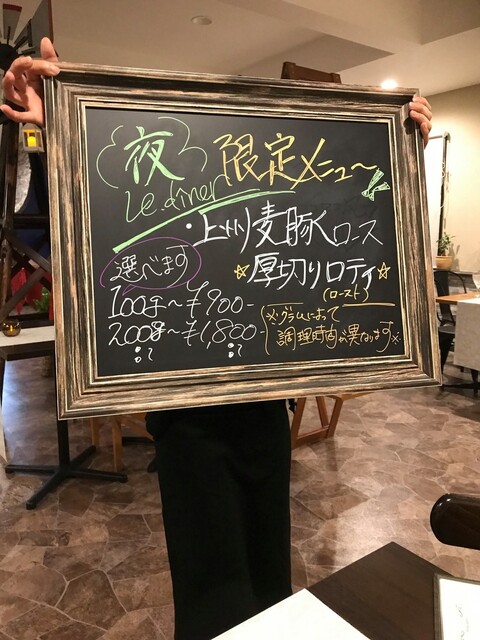 夜 限定メニュー
Le.diner
・上州麦豚ロース
選べます ☆厚切りロティ☆
(ロースト)
100g〜¥900-
200g〜¥1,800-
※グラムによって
調理時間が異なります※